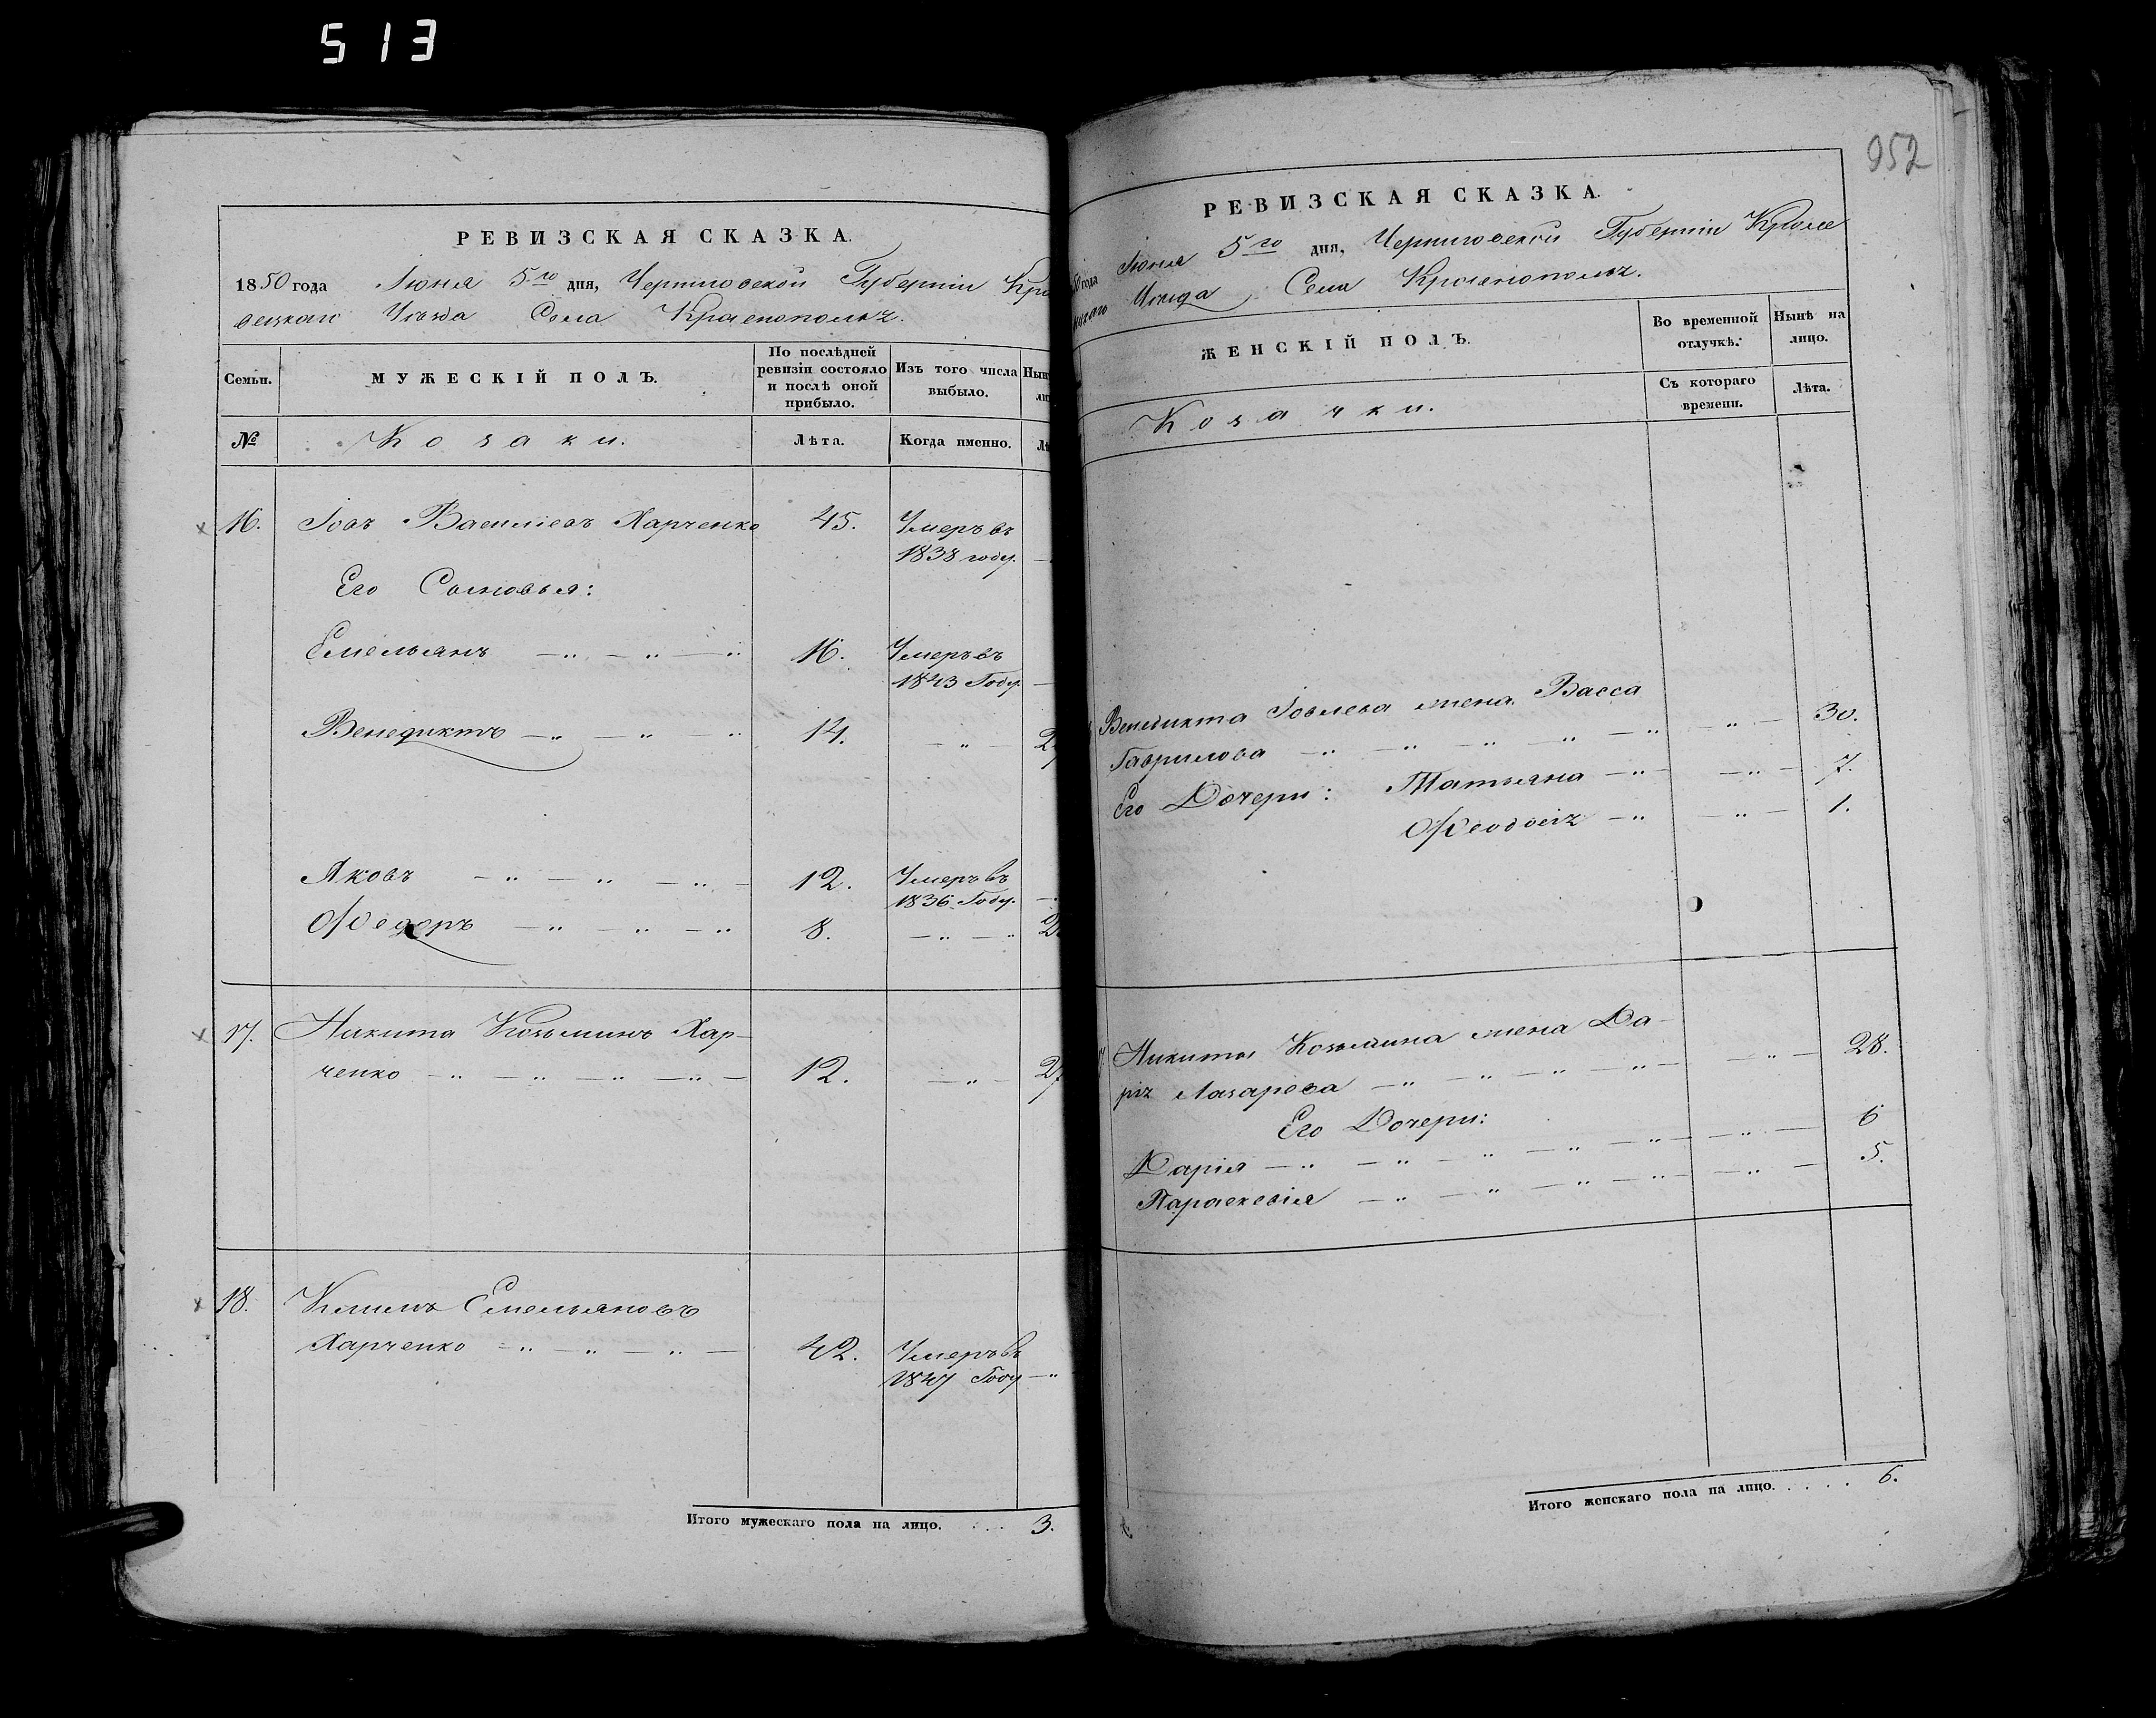 513
РЕВИЗСКАЯ СКАЗКА.
1850 года Июня 5го дня, Черниговской Губерніи
Уѣзда Села
Семьи. МУЖЕСКІЙ ПОЛЪ. По послѣдней ревизіи состояло и послѣ оной прибыло. Изъ того числа выбыло.
№ Козаки. Лѣта. Когда именно.
16. Іовъ Васильевъ Харченко 45. Умеръ въ
1838 году.
Его Сыновья:
Емельянъ 16. Умеръ въ
1843 Году.
Венедиктъ 14.
Яковъ 12. Умеръ въ
1836 Году.
Ѳедоръ 8.
17. Никита Козьминъ Хар-
ченко 12.
18. Емельяновъ
Харченко 42. Умеръ въ
1847 Году
Итого мужескаго пола на лицо. . . . . 3.
952
РЕВИЗСКАЯ СКАЗКА.
Іюня 5го дня, Черниговской Губерніи Кроле
Уѣзда Села
ЖЕНСКІЙ ПОЛЪ. Во временной отлучкѣ. Нынѣ на лицо.
Козачки. Съ котораго времени. Лѣта.
Венедикта Іовлева жена Васса
Гаврилова 30.
Его Дочери: Татьяна 7.
Ѳеодосія 1.
Никиты Козьмина жена Да-
рія Лазарева 28.
Его Дочери:
Дарія 6
Параскевія 5.
Итого женскаго пола на лицо. . . . . 6.